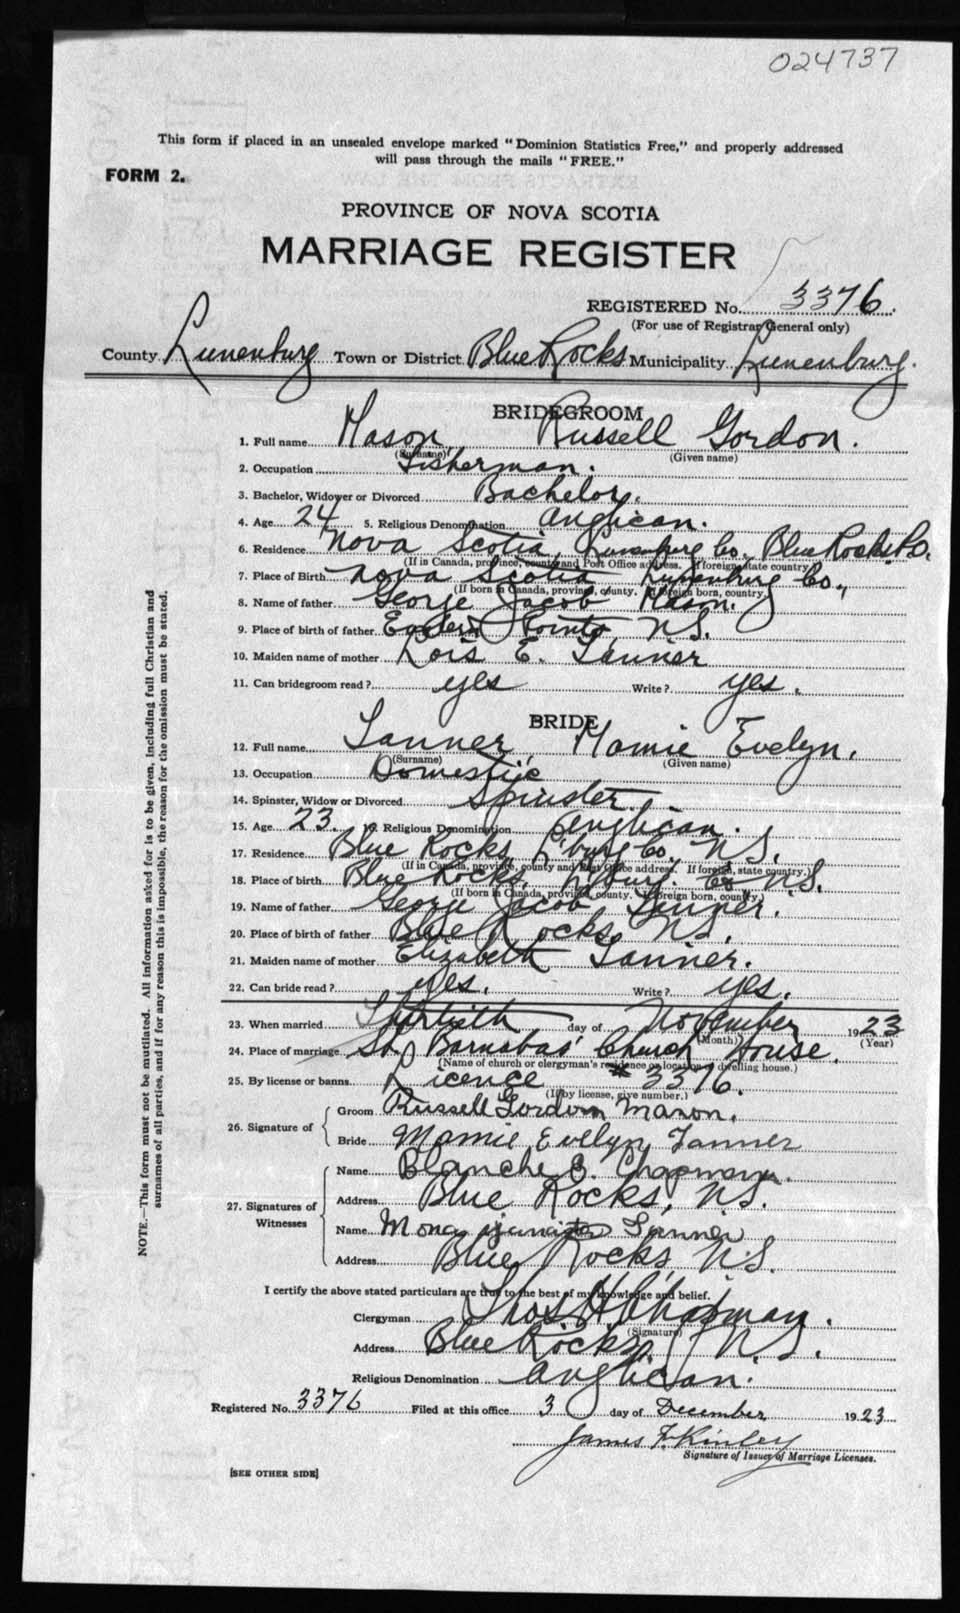 024737
This form if placed in an unsealed envelope marked "Dominion Statistics Free," and properly addressed
will pass through the mails "FREE."
FORM 2.
PROVINCE OF NOVA SCOTIA
MARRIAGE REGISTER
REGISTERED No. 3376.
(For use of Registrar General only)
County Lunenburg Town or District Blue Rocks Municipality Lunenburg.
BRIDEGROOM
1. Full name Mason Russell Gordon.
(Surname) (Given name)
2. Occupation Fisherman.
3. Bachelor, Widower or Divorced Bachelor.
4. Age 24 5. Religious Denomination Anglican.
6. Residence Nova Scotia, Lunenburg Co. Blue Rocks P.O.
(If in Canada, province, county and Post Office address. If foreign state country)
7. Place of Birth Nova Scotia Lunenburg Co.,
(If born in Canada, province, county. If foreign born, country.)
8. Name of father George Jacob Mason.
9. Place of birth of father Points N.S.
10. Maiden name of mother Lois E. Tanner
11. Can bridegroom read? yes Write? yes.
BRIDE
12. Full name Tanner Mamie Evelyn.
(Surname) (Given name)
13. Occupation Domestic
14. Spinster, Widow or Divorced Spinster
15. Age 23. 16. Religious Denomination Anglican.
17. Residence Blue Rocks, L'burg Co. N.S.
(If in Canada, province, county and Post Office address. If foreign, state country.)
18. Place of birth Blue Rocks, L'burg. Co N.S.
(If born in Canada, province, county. If foreign born, country.)
19. Name of father George Jacob Tanner.
20. Place of birth of father Blue Rocks, N.S.
21. Maiden name of mother Elizabeth Tanner.
22. Can bride read? yes. Write? yes.
23. When married Thirtieth day of November 1923
(Month) (Year)
24. Place of marriage St. Barnabas' Church House.
(Name of church or clergyman's residence or location of dwelling house.)
25. By license or banns Licence # 3376.
(If by license, give number.)
26. Signature of Groom Russell Gordon Mason.
Bride Mamie Evelyn Tanner
27. Signatures of Witnesses
Name Blanche E. Chapman.
Address Blue Rocks, N.S.
Name Mona Tanner
Address Blue Rocks, N.S.
I certify the above stated particulars are true to the best of my knowledge and belief.
Clergyman Thos. H. Chapman.
(Signature)
Address Blue Rocks, N.S.
Religious Denomination Anglican.
Registered No. 3376 Filed at this office 3 day of December 1923
James F. Kinley
Signature of Issuer of Marriage Licenses.
[SEE OTHER SIDE]
NOTE.—This form must not be mutilated. All information asked for is to be given, including full Christian and
surnames of all parties, and if for any reason this is impossible, the reason for the omission must be stated.